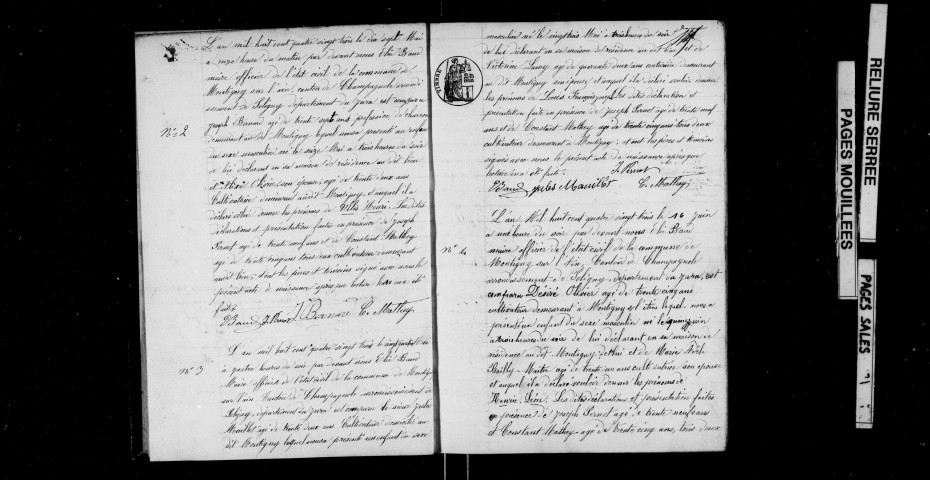 L'an mil huit cent quatre vingt trois le dix sept Mai
à onze heure du matin par devant nous Elie Baud
maire officier de l'état civil de la commune de
Montigny sur l'ain, canton de Champagnole arrondis
sement de Poligny département du Jura est comparu
agé de trente sept ans profession de charron
demeurant au dit Montigny lequel nous a présenté un enfant
N° 2
du sexe masculin né le seize Mai à trois heures du soir
de lui déclarant en sa maison de résidence au dit lieu
et son épouse, agé de trente deux ans
Cultivatrice demeurant audit Montigny, et auquel il a
déclaré donner les prénoms de Henri. Les dites
déclarations et présentation faites en présence de Joseph
Pernet agé de trente neuf ans et de Constant Mathey
agé de trente cinq ans tous deux cultivateurs demeurant
audit lieu; et ont les pères et témoins signé avec nous le
présent acte de naissance après que lecture leur en a été
faite.
E Baud J. Pernet C. Mathey
N° 3
L'an mil huit cent quatre vingt trois le
à quatre heures du soir par devant nous Elie Baud
Maire officier de l'état civil de la commune de Montigny
sur l'ain Canton de Champagnole arrondissement de
Poligny département du Jura est comparu le sieur Jules
agé de trente deux ans Cultivateur demeurant au
dit Montigny lequel nous a présenté un enfant du sexe
masculin né le vingt trois Mai à trois heures du soir
de lui déclarant en sa maison de résidence au dit lieu et de
Victorine agé de quarante deux ans cultivatrice demeurant
au dit Montigny son épouse, et auquel il a déclaré vouloir donner
les prénoms de Louis François. Les dites déclaration et
présentation faite en présence de Joseph Pernet agé de trente neuf
ans et de Constant Mathey agé de trente cinq ans tous deux
cultivateurs demeurant à Montigny; et ont les pères et témoins
signés avec nous le présent acte de naissance après que
lecture leur en a été faite.
J. Pernet
E Baud Jules C. Mathey
N° 4
L'an Mil huit cent quatre vingt trois le 16 Juin
à une heure du soir par devant nous Elie Baud
maire officier de l'état civil de la commune de
Montigny sur l'Ain, Canton de Champagnole
arrondissement de Poligny, département du Jura, est
comparu Désiré Olivier agé de trente cinq ans
cultivateur demeurant à Montigny lequel nous a
présenté un enfant de sexe masculin né le quinze juin
à trois heures du soir de lui déclarant en sa maison de
résidence au dit Montigny et de Marie Adèle
Bailly-Maitre agé de trente un ans cultivatrice son épouse
et auquel il a déclaré vouloir donner les prénoms de
Henri, Léon. Les dites déclarations et présentation faites
en présence de Joseph Pernet agé de trente neuf ans
et Constant Mathey agé de trente cinq ans, tous deux
RELIURE SERREE
PAGES MOUILLEES
PAGES SALES